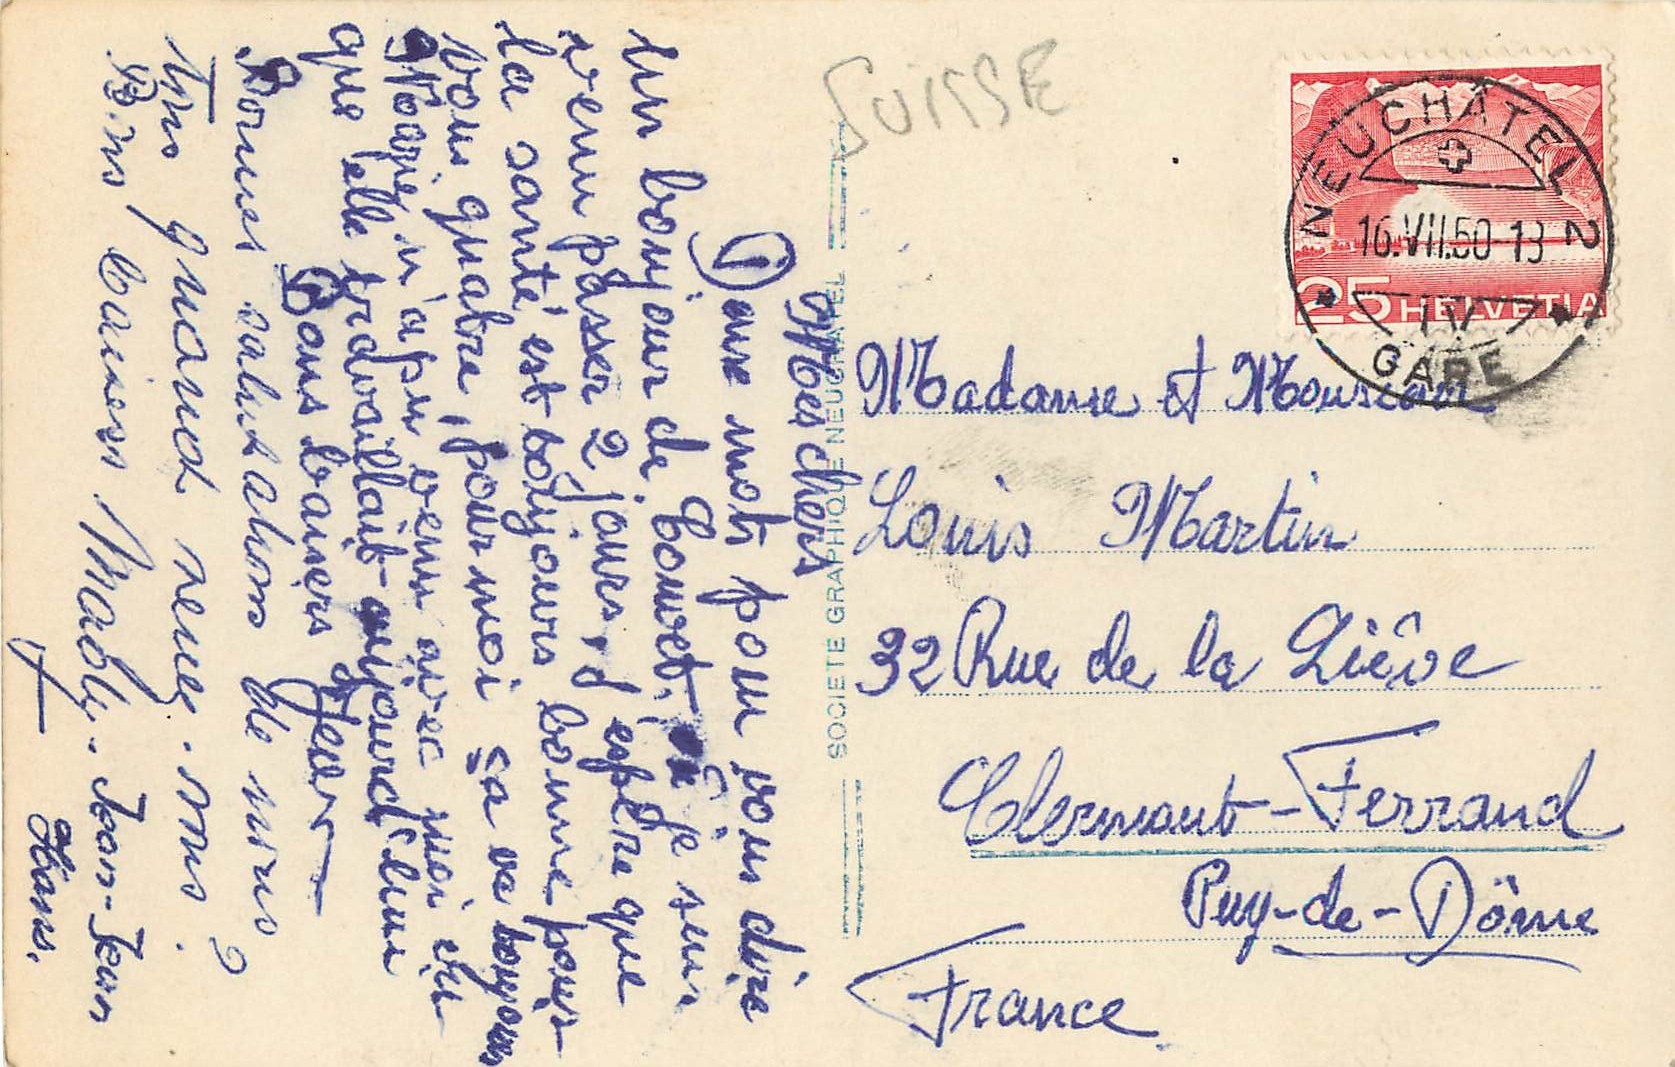 Mes chers
Deux mots pour vous dire
un bonjour de Couvet, où je suis
venu passer 2 jours, j'espère que
la santé est toujours bonne pour
vous quatre, pour moi ça va toujours
Marie n'a pu venir avec moi
que elle travaillait aujourd'hui
Bons baisers Jean
Bonnes salutations de nous
quand venez-vous?
Bons baisers Mady. Jean-Jean
Hans.
SUISSE
NEUCHÂTEL 2
16.VII.50-13
IV
GARE
25 HELVETIA
SOCIETE GRAPHIQUE NEUCHATEL
Madame et Monsieur
Louis Martin
32 Rue de la Liève
Clermont-Ferrand
Puy-de-Dôme
France